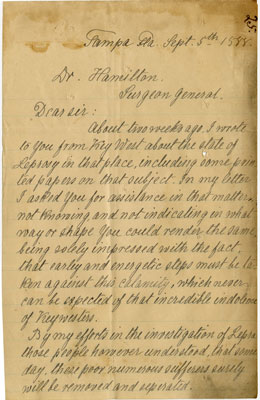 Tampa Fla. Sept. 5th 1888.
Dr. Hamilton.
Surgeon General.
Dear sir:
About two weeks ago, I wrote
to You from Key West about the state of
Leprosy in that place, including some prin-
ted papers on that subject. In my letter
I asked You for assistance in that matter,
not knowing and not indicating in what
way or shape You could render the same,
being solely impressed with the fact
that earley and energetic steps must be ta-
ken against this calamity, which never
can be expected of that incredible indolence
of Keywesters.
By my efforts in the investigation of Lepra
those people however understood, that some
day, these poor numerous sufferers surely
will be removed and seperated.